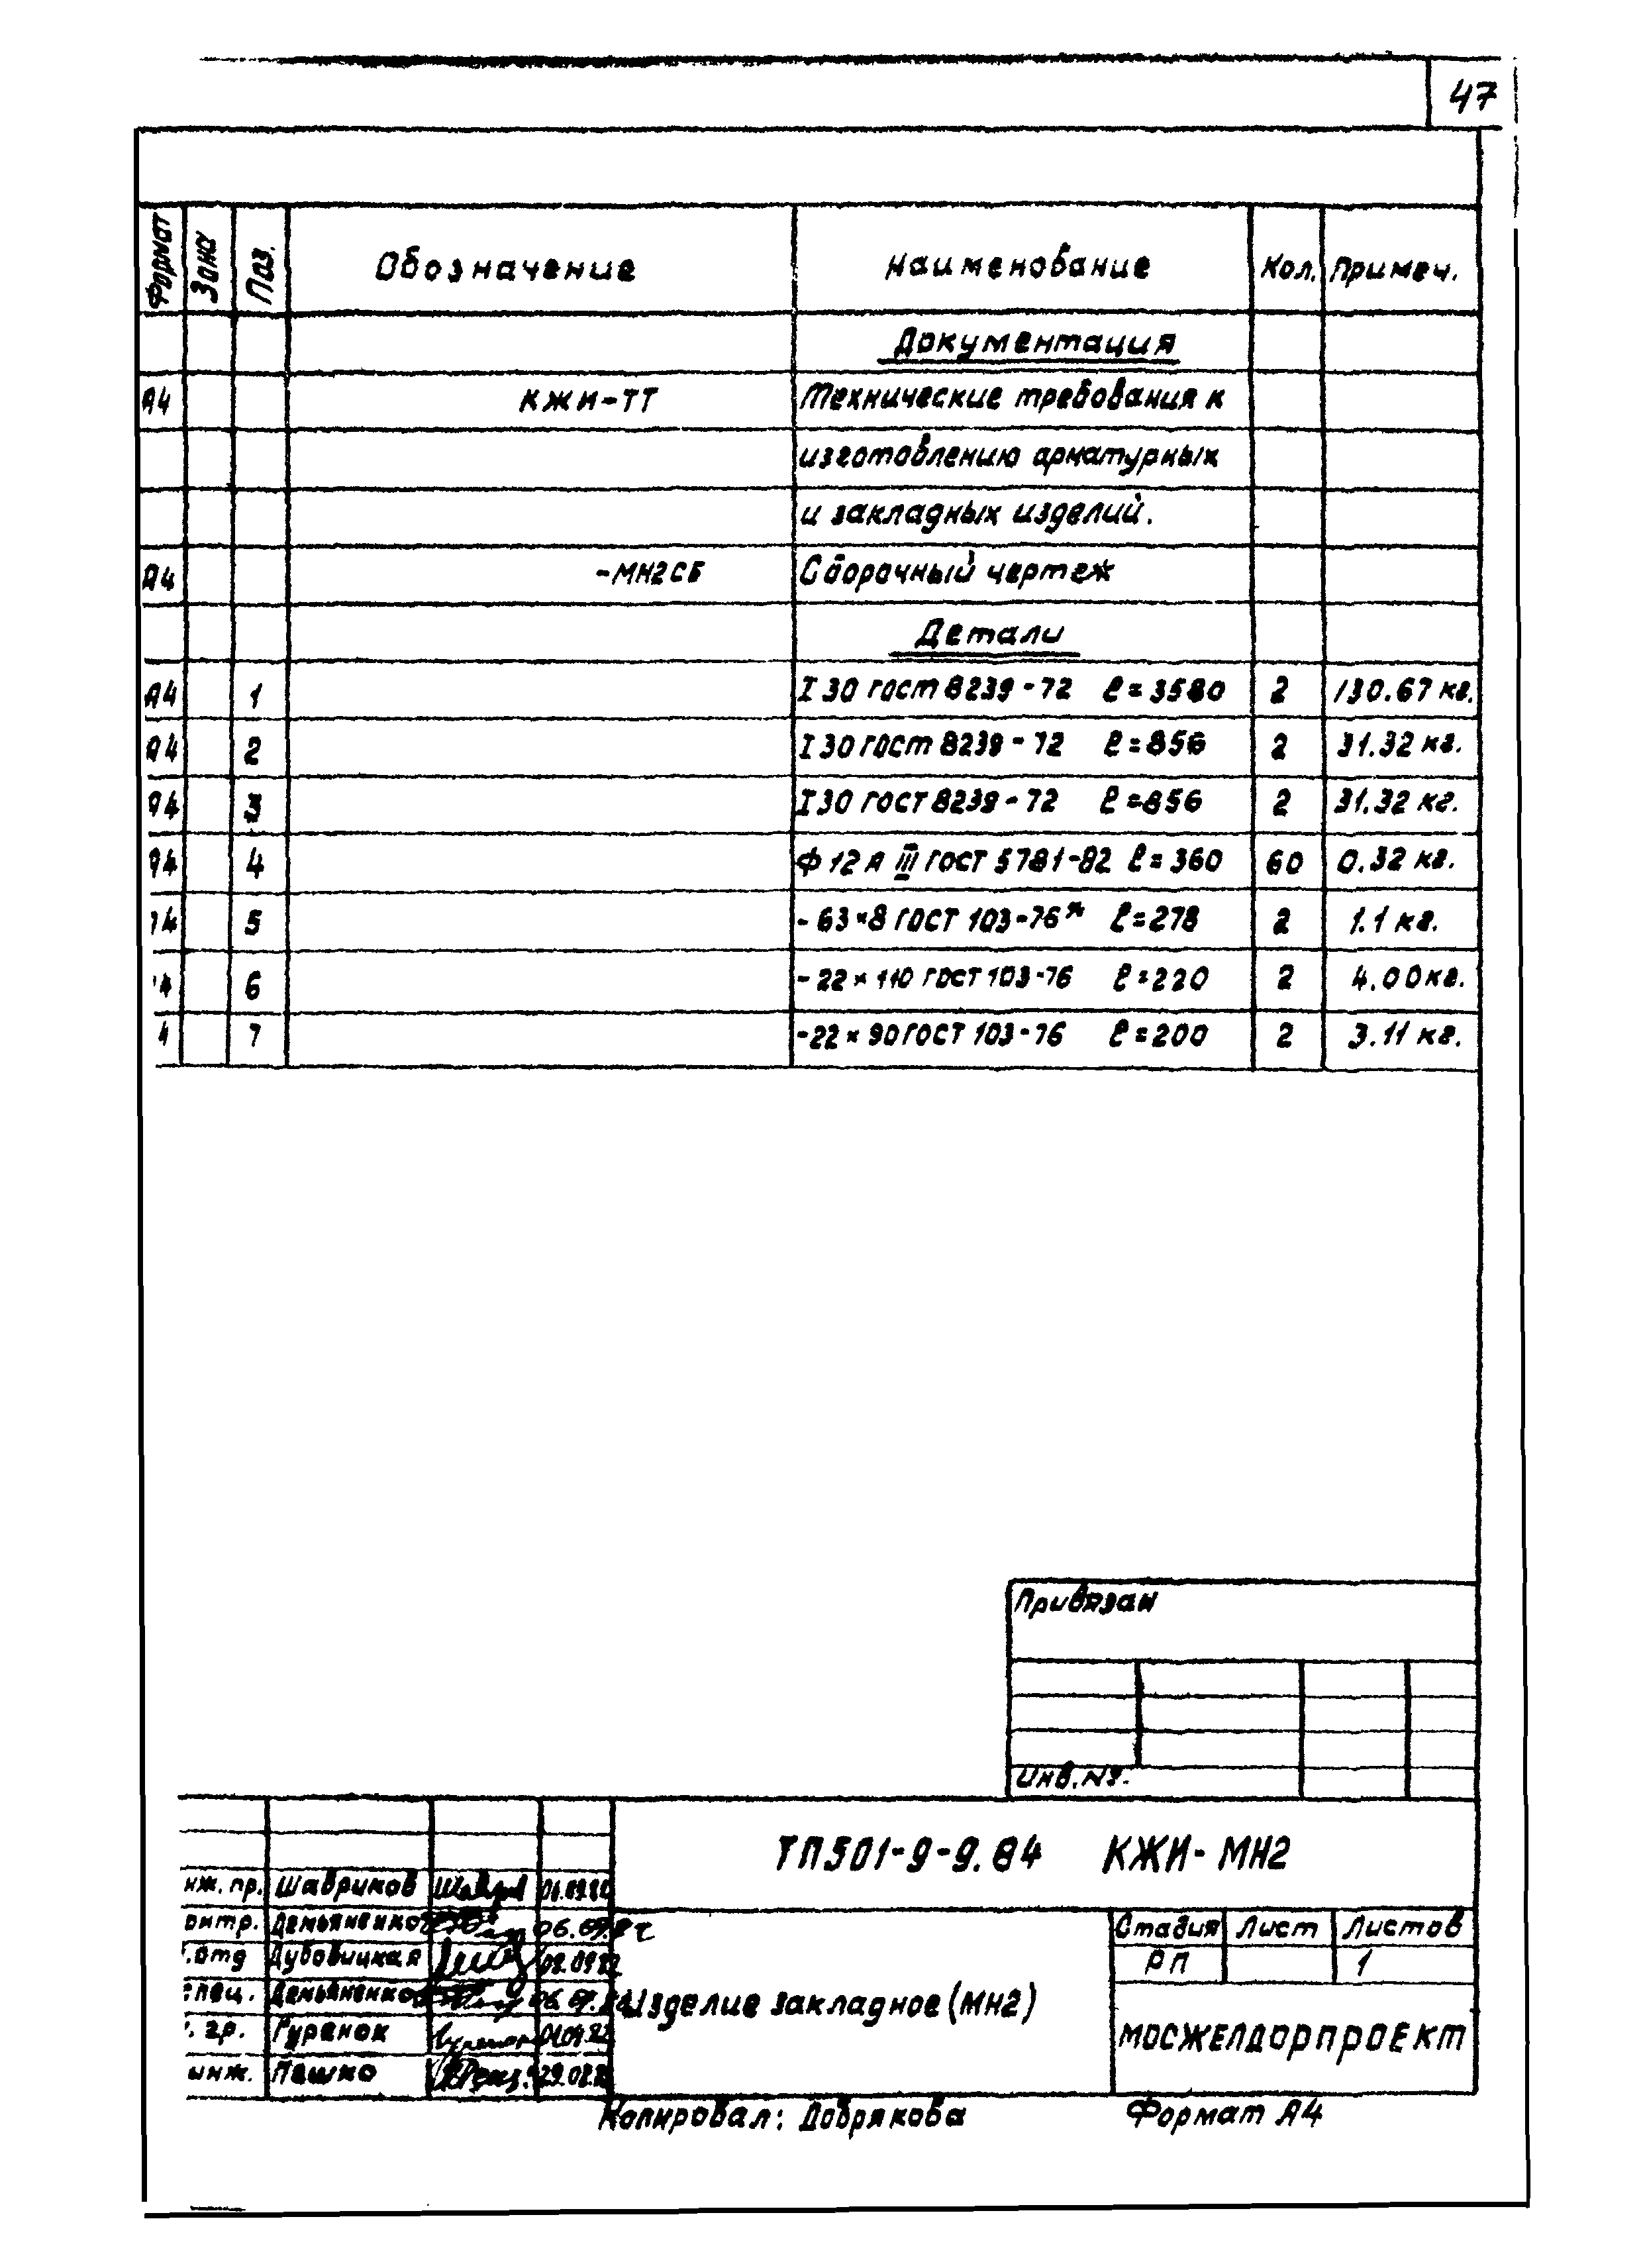 47
Формат Зона Поз. Обозначение Наименование Кол. Примеч.
Документация
А4 КЖИ-ТТ Технические требования к
изготовлению арматурных
и закладных изделий.
А4 -МН2СБ Сборочный чертеж
Детали
А4 1 I 30 ГОСТ 8239-72 ℓ=3580 2 130.67 кг.
А4 2 I 30 ГОСТ 8239-72 ℓ=856 2 31.32 кг.
А4 3 I 30 ГОСТ 8239-72 ℓ=856 2 31.32 кг.
А4 4 Ф 12 А III ГОСТ 5781-82 ℓ=360 60 0.32 кг.
А4 5 - 63×8 ГОСТ 103-76* ℓ=278 2 1.1 кг.
4 6 - 22×110 ГОСТ 103-76 ℓ=220 2 4.00 кг.
4 7 -22×90 ГОСТ 103-76 ℓ=200 2 3.11 кг.
Привязан
Инв. №.
ТП501-9-9.84 КЖИ-МН2
нж. пр. Шавриков
онтр. Демьяненко
.отд Дубовицкая
спец. Демьяненко
. гр. Гуренок
инж. Пашко
Изделие закладное (МН2)
Стадия Лист Листов
РП 1
МОСЖЕЛДОРПРОЕКТ
Копировал: Добрякова Формат А4